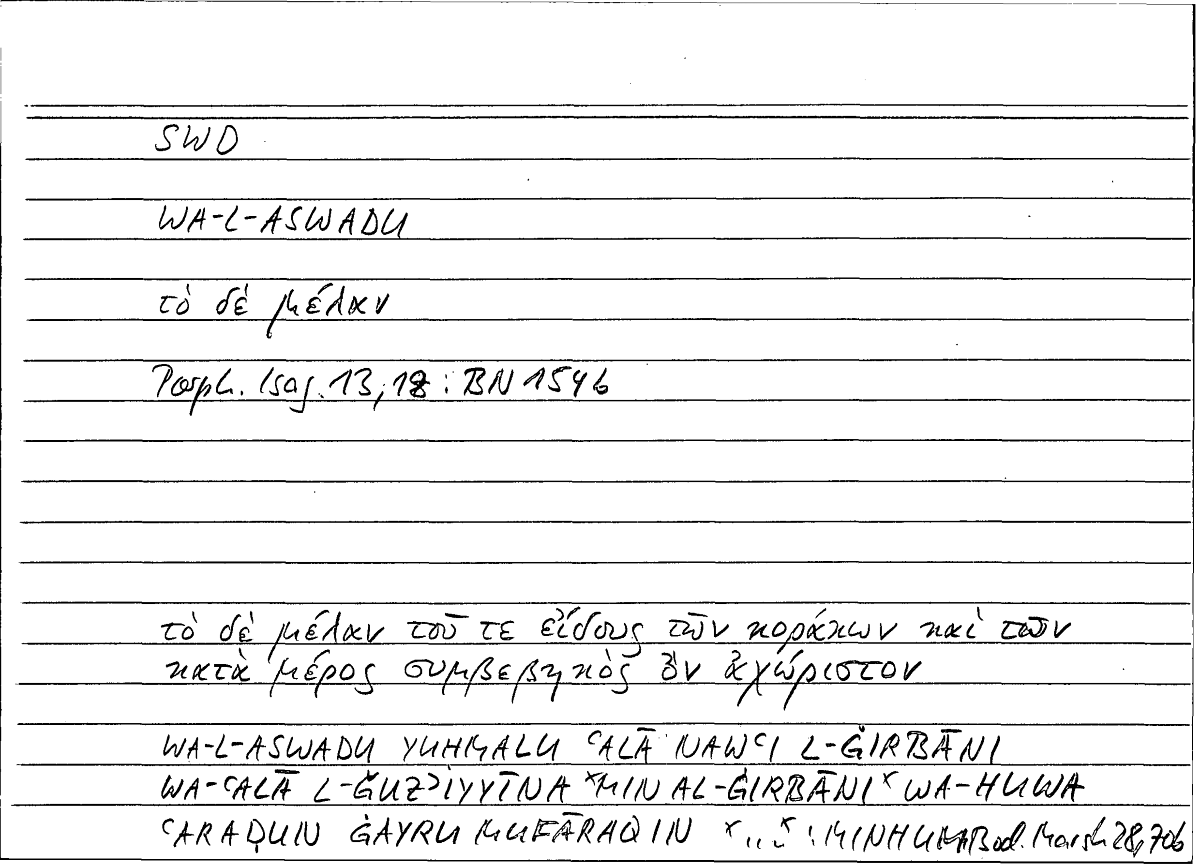 SWD
WA-L-ASWADU
τὸ δὲ μέλαν
Porph. Isag. 13,18 : BN 154b
τὸ δὲ μέλαν τοῦ τε εἴδους τῶν κοράκων καὶ τῶν
κατὰ μέρος συμβεβηκὸς ὂν ἀχώριστον
WA-L-ASWADU YUḤMALU ʿALĀ NAWʿI L-ĠIRBĀNI
WA-ʿALĀ L-ǦUZʾIYYĪNA ˣMIN AL-ĠIRBĀNIˣ WA-HUWA
ʿARAḌUN ĠAYRU MUFĀRAQIN ˣ„ˣ : MINHUM Bod. Marsh 28,70b